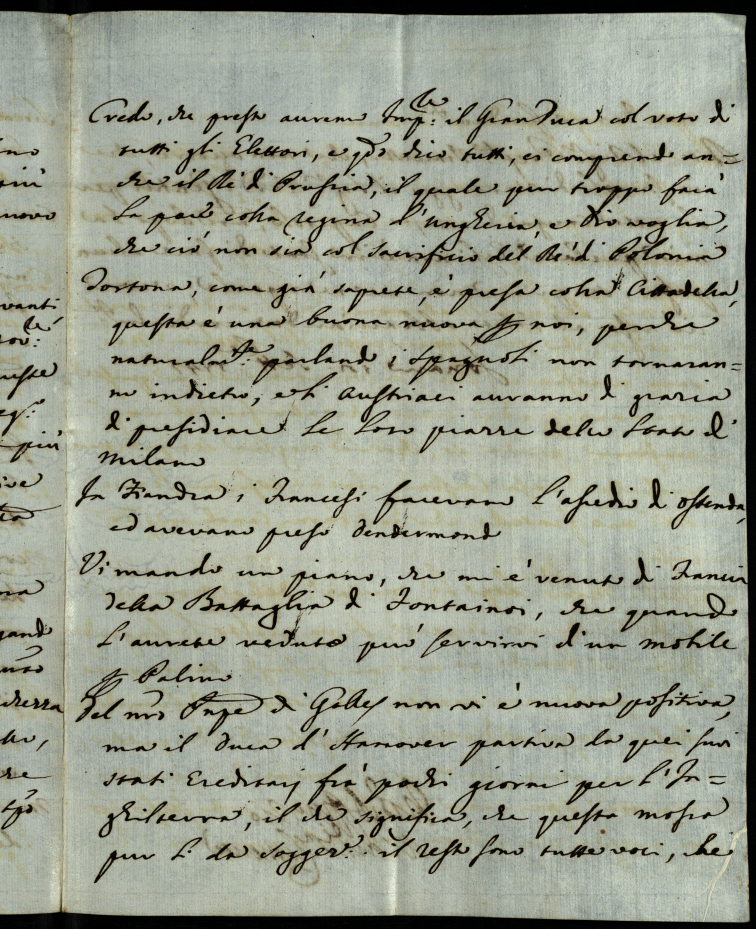 Credo, che presto auremo Imp.le il Gran Duca col voto di
tutti gli Elettori, e qdo dico tutti, ci comprendo an=
che il Rè di Prussia, il quale pur troppo farà
la pace colla regina d'ungheria, e Dio voglia,
che ciò non sia col sacrificio del Rè di Polonia
Tortona, come già sapete, è presa colla Cittadella,
questa è una buona nuova p noi, perche
naturalm.te parlando i Spagnoli non tornaran=
no indietro, e li Austriaci auranno di grazia
di presidiare le loro piazze dello stato di
milano
In Fiandra i Francesi facevano l'assedio di ostenda,
ed avevano preso Dendermond
Vi mando un piano, che mi è venuto di Francia
della Battaglia di Fontainoi, che quando
l'aurete veduto può servirvi d'un mobile
p Palino
Del nro Pnpe di Galles non vi è nuova positiva,
ma il Duca d'Hanover partiva da quei suoi
stati Ereditarj frà pochi giorni per l'In=
ghilterra, il che significa, che questa mossa
pur li dà sogger.e il resto sono tutte voci, che
no
più
nuovo
vanti
uesta
più
ive
na
uto
che
tpo